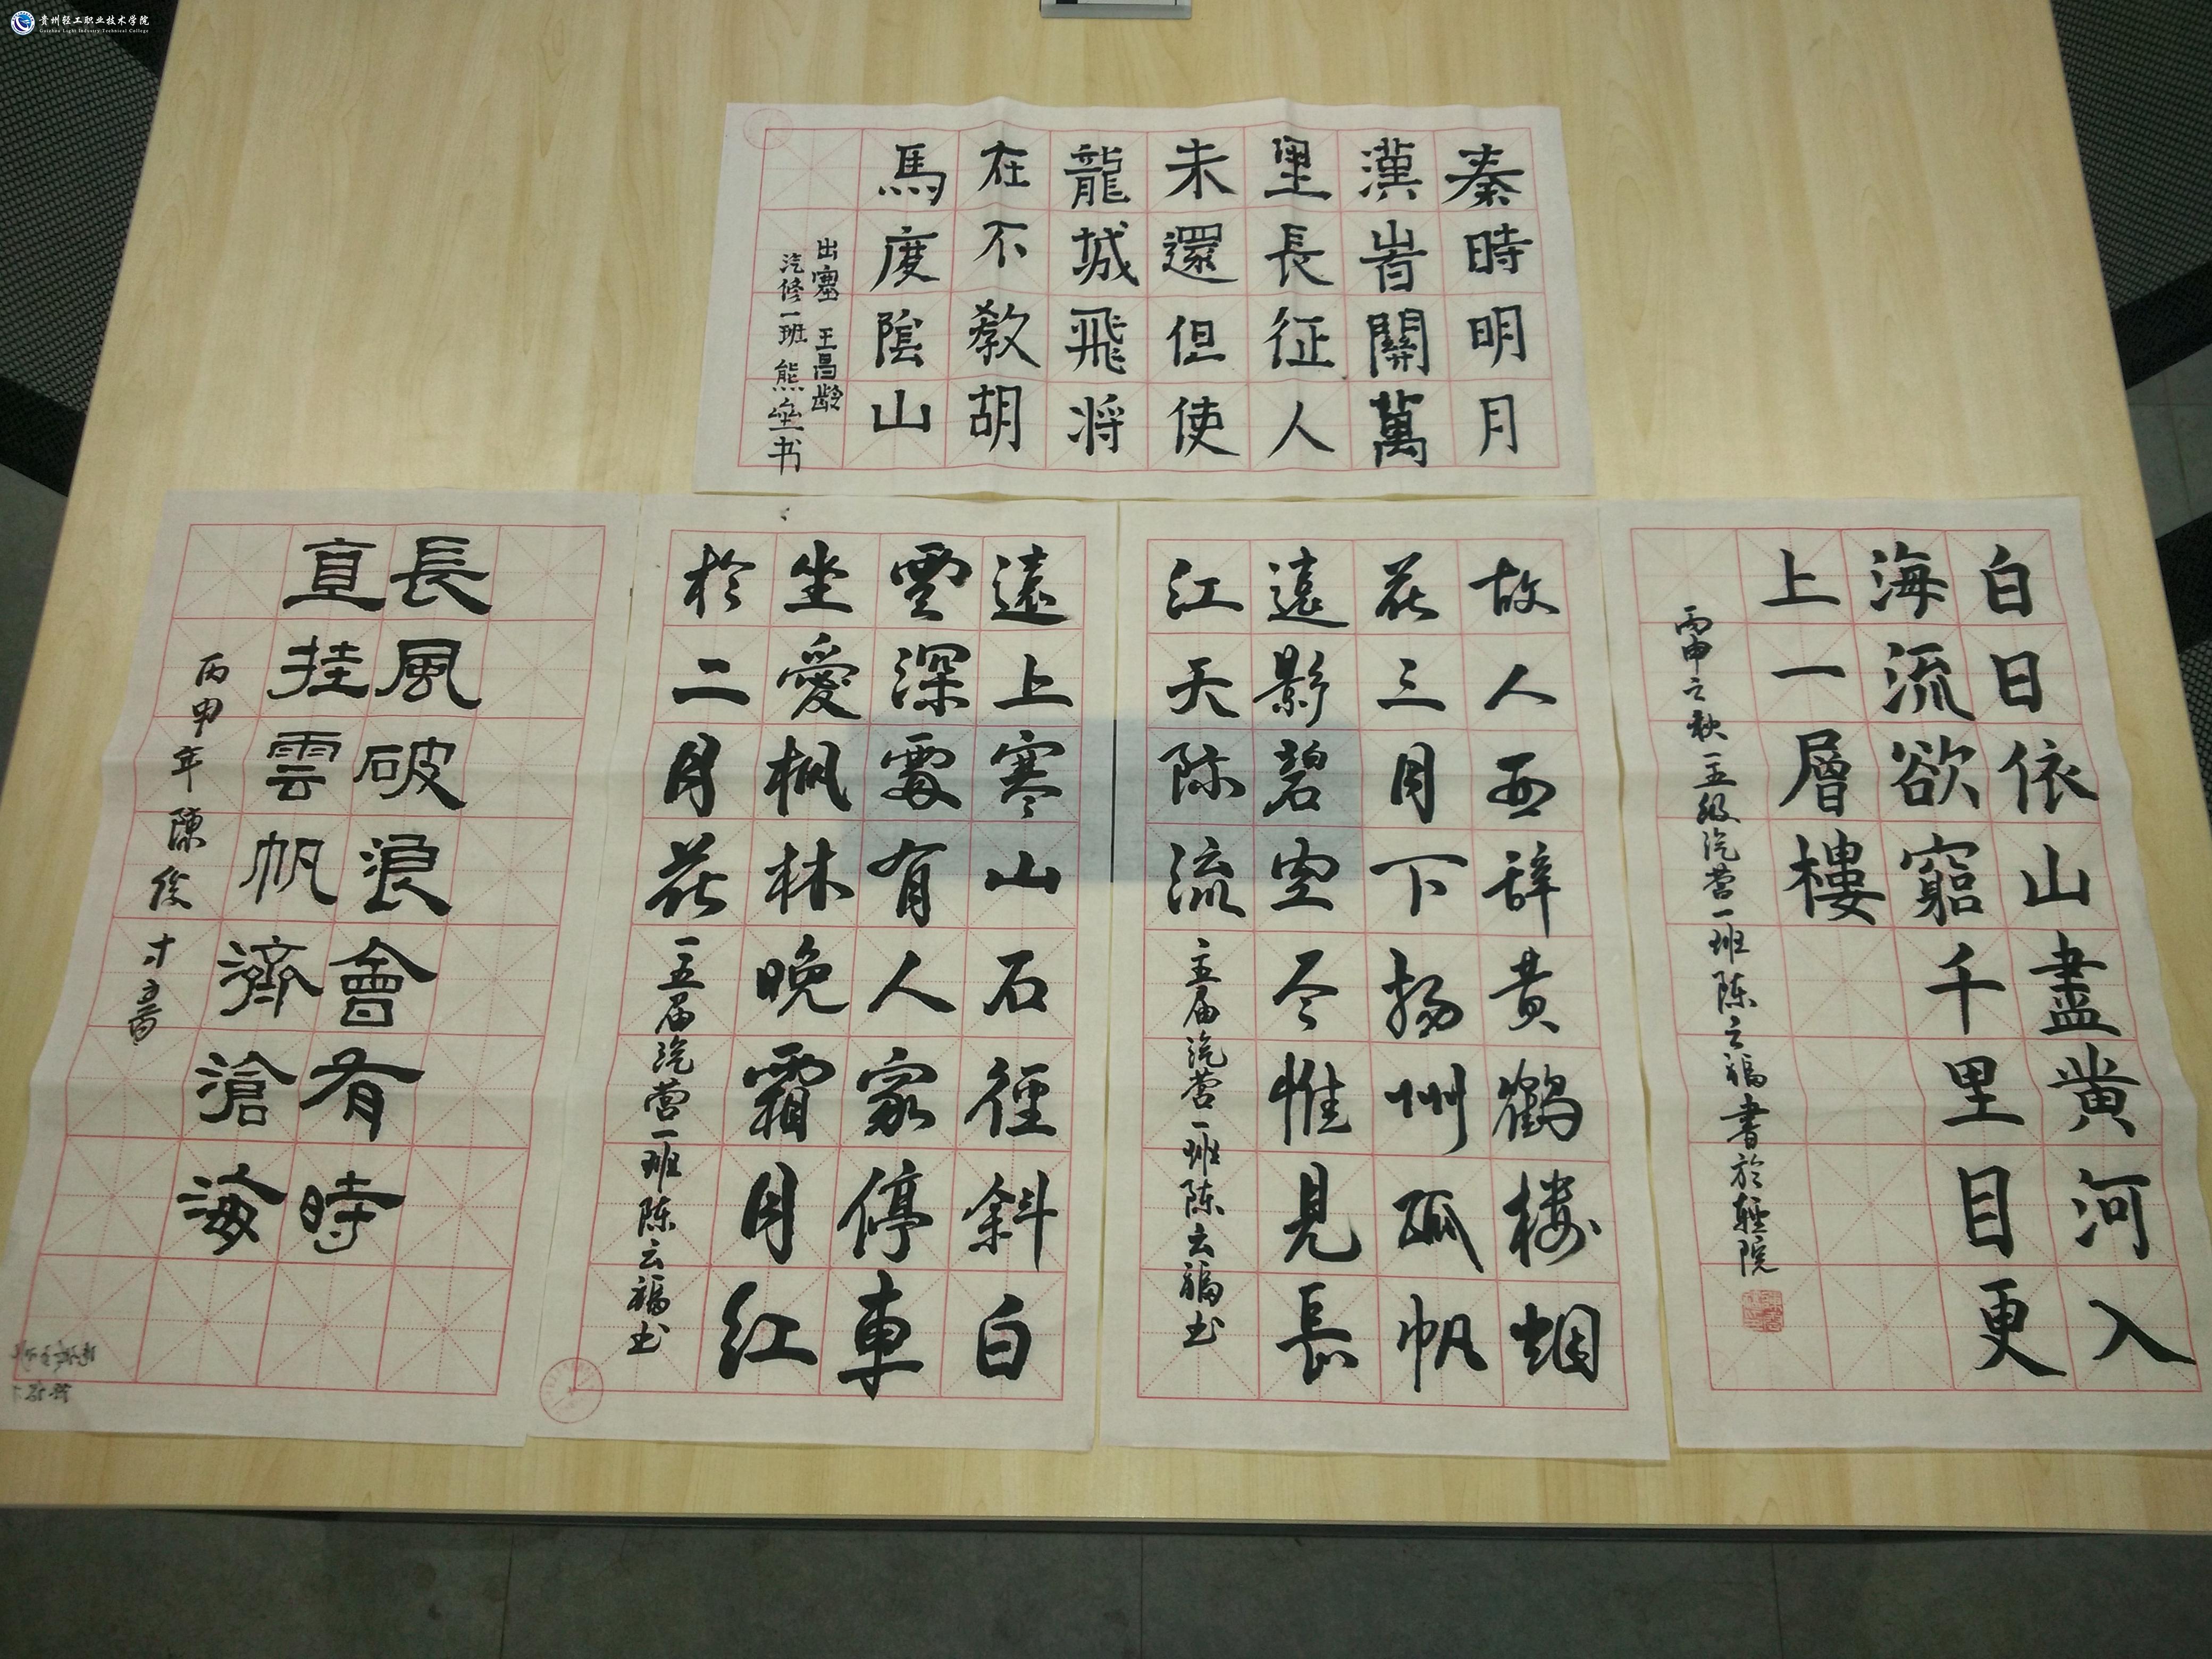 贵州轻工职业技术学院
Guizhou Light Industry Technical College
秦時明月
漢旹關萬
里長征人
未還但使
龍城飛将
在不教胡
馬度陰山
出塞 王昌龄
汽修一班 熊垒书
白日依山盡黄河入
海流欲窮千里目更
上一層樓
丙申之秋一五级汽营一班陈云福書於輕院
故人西辞黄鹤楼烟
花三月下扬州孤帆
遠影碧空尽惟見長
江天际流
一五届汽营一班陈云福书
遠上寒山石徑斜白
雲深處有人家停車
坐愛枫林晚霜月红
於二月花
一五届汽营一班陈云福书
長風破浪會有時
直挂雲帆濟滄海
丙申年 陳俊才書